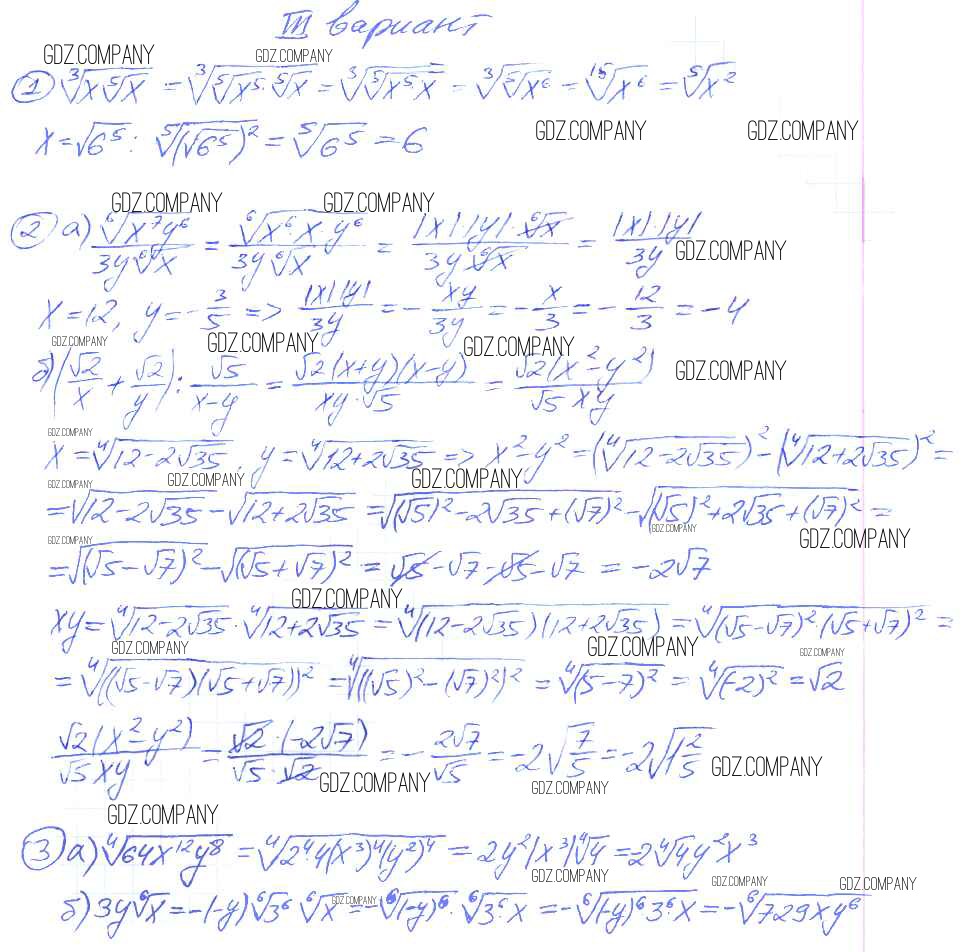 III вариант
GDZ.COMPANY GDZ.COMPANY
① ∛(x⁵√x) = ∛(⁵√x⁵·⁵√x) = ∛(⁵√(x⁵·x)) = ∛(⁵√x⁶) = ¹⁵√x⁶ = ⁵√x²
GDZ.COMPANY GDZ.COMPANY
x = √6⁵ : ⁵√((√6⁵)²) = ⁵√6⁵ = 6
GDZ.COMPANY GDZ.COMPANY
② а) ⁶√(x⁷y⁶) / (3y⁶√x) = ⁶√(x⁶·x·y⁶) / (3y⁶√x) = |x|·|y|·⁶√x / (3y⁶√x) = |x|·|y| / 3y
GDZ.COMPANY
x = 12, y = -3/5 => |x||y| / 3y = - xy / 3y = - x/3 = - 12/3 = -4
GDZ.COMPANY GDZ.COMPANY GDZ.COMPANY GDZ.COMPANY
б) (√2/x + √2/y) : √5/(x-y) = √2(x+y)(x-y) / (xy·√5) = √2(x²-y²) / (√5 xy)
GDZ.COMPANY
x = ⁴√(12-2√35), y = ⁴√(12+2√35) => x²-y² = (⁴√(12-2√35))² - (⁴√(12+2√35))² =
GDZ.COMPANY GDZ.COMPANY GDZ.COMPANY
= √(12-2√35) - √(12+2√35) = √((√5)²-2√35+(√7)²) - √((√5)²+2√35+(√7)²) =
GDZ.COMPANY GDZ.COMPANY GDZ.COMPANY
= √((√5-√7)²) - √((√5+√7)²) = √5-√7-√5-√7 = -2√7
GDZ.COMPANY
xy = ⁴√(12-2√35)·⁴√(12+2√35) = ⁴√((12-2√35)(12+2√35)) = ⁴√((√5-√7)²·(√5+√7)²) =
GDZ.COMPANY GDZ.COMPANY GDZ.COMPANY
= ⁴√(((√5-√7)(√5+√7))²) = ⁴√(((√5)²-(√7)²)²) = ⁴√((5-7)²) = ⁴√((-2)²) = √2
√2(x²-y²) / (√5 xy) = √2·(-2√7) / (√5·√2) = - 2√7/√5 = -2√(7/5) = -2√(1 2/5)
GDZ.COMPANY GDZ.COMPANY GDZ.COMPANY
GDZ.COMPANY
③ а) ⁴√(64x¹²y⁸) = ⁴√(2⁴·4(x³)⁴(y²)⁴) = 2y²|x³|⁴√4 = 2⁴√4y²x³
GDZ.COMPANY GDZ.COMPANY GDZ.COMPANY
б) 3y⁶√x = -(-y)⁶√3⁶ ⁶√x = -⁶√((-y)⁶)·⁶√(3⁶·x) = -⁶√((-y)⁶3⁶·x) = -⁶√(729xy⁶)
GDZ.COMPANY